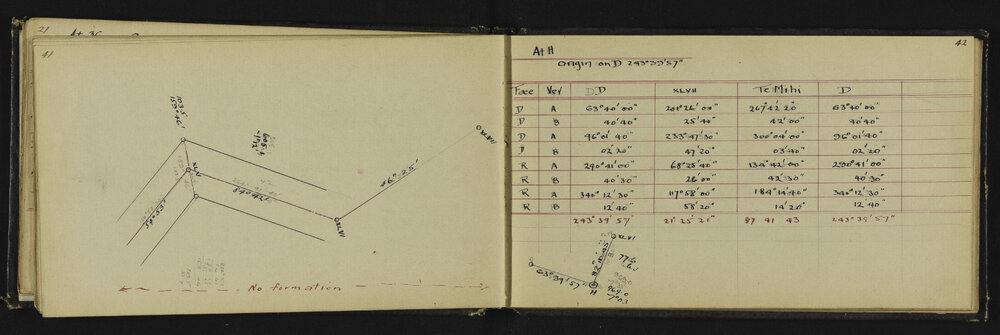 21
At 36
41
103.5
159°46'
605.4
1°12'
XLV
XLVII
46°.25'
84°42'
54°53'
XLVI
No formation
42
At H
Origin on D 243°39'57"
Face Ver D D XLVII Te Mihi D
D A 63°40'00" 201°26'00" 267°42'20" 63°40'00"
D B 40'40" 25'40" 42'00" 40'40"
D A 96°01'40" 233°47'30" 300°04'00" 96°01'40"
D B 02'20" 47'20" 03'40" 02'20"
R A 290°41'00" 68°25'40" 134°42'00" 290°41'00"
R B 40'30" 26'00" 42'30" 40'30"
R A 340°12'30" 117°58'00" 184°14'40" 340°12'30"
R B 12'40" 58'20" 14'20" 12'40"
243°39'57" 21°25'21" 87 41 43 243°39'57"
XLVI
63°39'57"
H
969.0
7°03